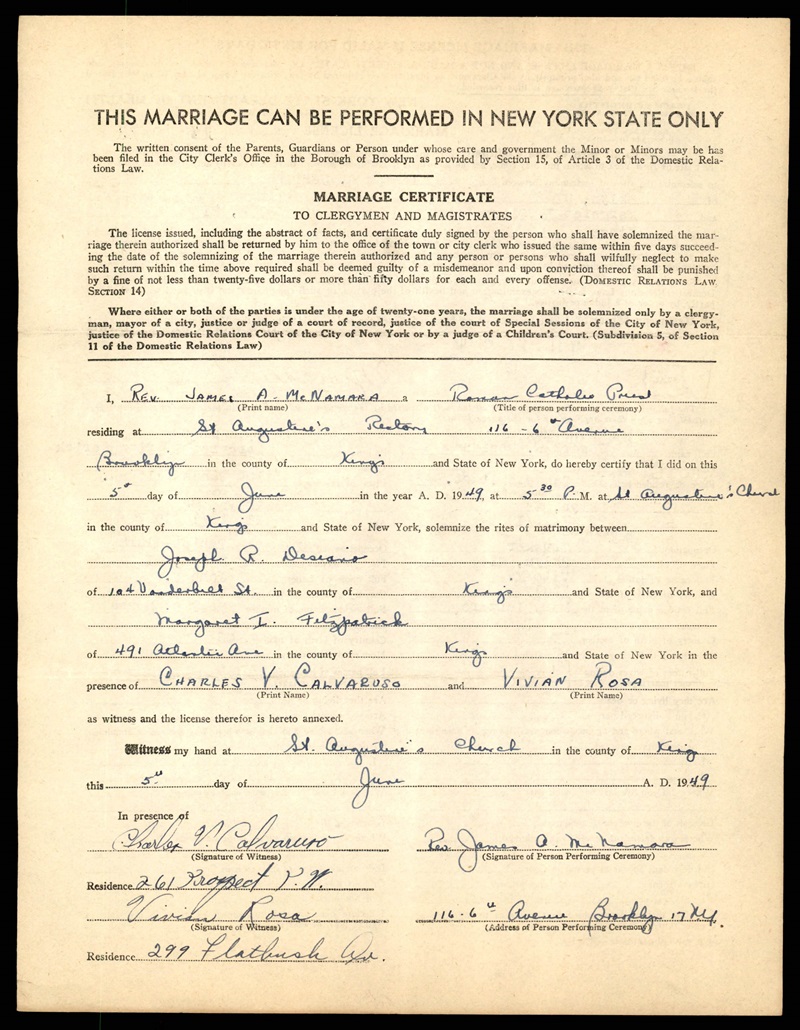 THIS MARRIAGE CAN BE PERFORMED IN NEW YORK STATE ONLY
The written consent of the Parents, Guardians or Person under whose care and government the Minor or Minors may be has
been filed in the City Clerk's Office in the Borough of Brooklyn as provided by Section 15, of Article 3 of the Domestic Rela-
tions Law.
MARRIAGE CERTIFICATE
TO CLERGYMEN AND MAGISTRATES
The license issued, including the abstract of facts, and certificate duly signed by the person who shall have solemnized the mar-
riage therein authorized shall be returned by him to the office of the town or city clerk who issued the same within five days succeed-
ing the date of the solemnizing of the marriage therein authorized and any person or persons who shall wilfully neglect to make
such return within the time above required shall be deemed guilty of a misdemeanor and upon conviction thereof shall be punished
by a fine of not less than twenty-five dollars or more than fifty dollars for each and every offense. (DOMESTIC RELATIONS LAW
SECTION 14)
Where either or both of the parties is under the age of twenty-one years, the marriage shall be solemnized only by a clergy-
man, mayor of a city, justice or judge of a court of record, justice of the court of Special Sessions of the City of New York,
justice of the Domestic Relations Court of the City of New York or by a judge of a Children's Court. (Subdivision 5, of Section
11 of the Domestic Relations Law)
I, REV. JAMES A. McNAMARA a Roman Catholic Priest
(Print name) (Title of person performing ceremony)
residing at St Augustine's Rectory 116 - 6th Avenue
Brooklyn in the county of Kings and State of New York, do hereby certify that I did on this
5th day of June in the year A. D. 1949, at 5 30 P. M. at St Augustine's Church
in the county of Kings and State of New York, solemnize the rites of matrimony between
Joseph R.
of 104 Vanderbilt St. in the county of Kings and State of New York, and
Margaret I. Fitzpatrick
of 491 Atlantic Ave in the county of Kings and State of New York in the
presence of CHARLES V. CALVARUSO and VIVIAN ROSA
(Print Name) (Print Name)
as witness and the license therefor is hereto annexed.
Witness my hand at St. Augustine's Church in the county of Kings
this 5th day of June A. D. 1949
In presence of
Charles V. Calvaruso Rev. James A. McNamara
(Signature of Witness) (Signature of Person Performing Ceremony)
Residence 261 Prospect P. W.
Vivian Rosa 116-6th Avenue Brooklyn 17 N.Y.
(Signature of Witness) (Address of Person Performing Ceremony)
Residence 299 Flatbush Av.